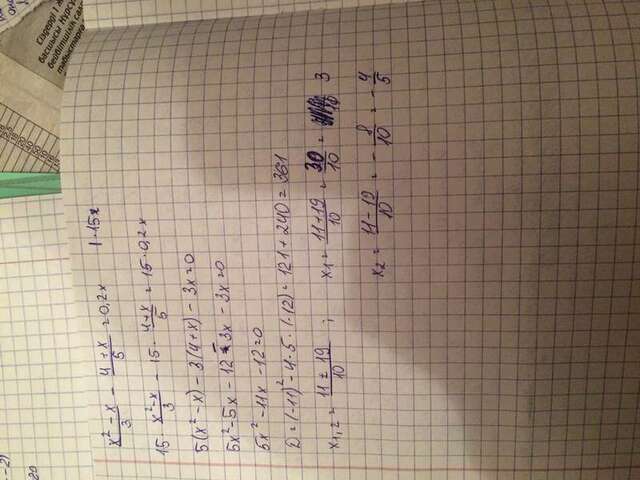 Сіздерді 1
басшысы Нұрсұ
бейбітшілік
табыстарға
(x² - x)/3 - (4+x)/5 = 0,2x |·15
15 · (x²-x)/3 - 15 · (4+x)/5 = 15 · 0,2x
5(x² - x) - 3(4+x) - 3x=0
5x² - 5x - 12 - 3x - 3x=0
5x² - 11x - 12=0
D = (-11)² - 4·5·(-12) = 121 + 240 = 361
x₁,₂ = (11 ± 19)/10 ; x₁ = (11+19)/10 = 30/10 = 3
x₂ = (11-19)/10 = - 8/10 = - 4/5